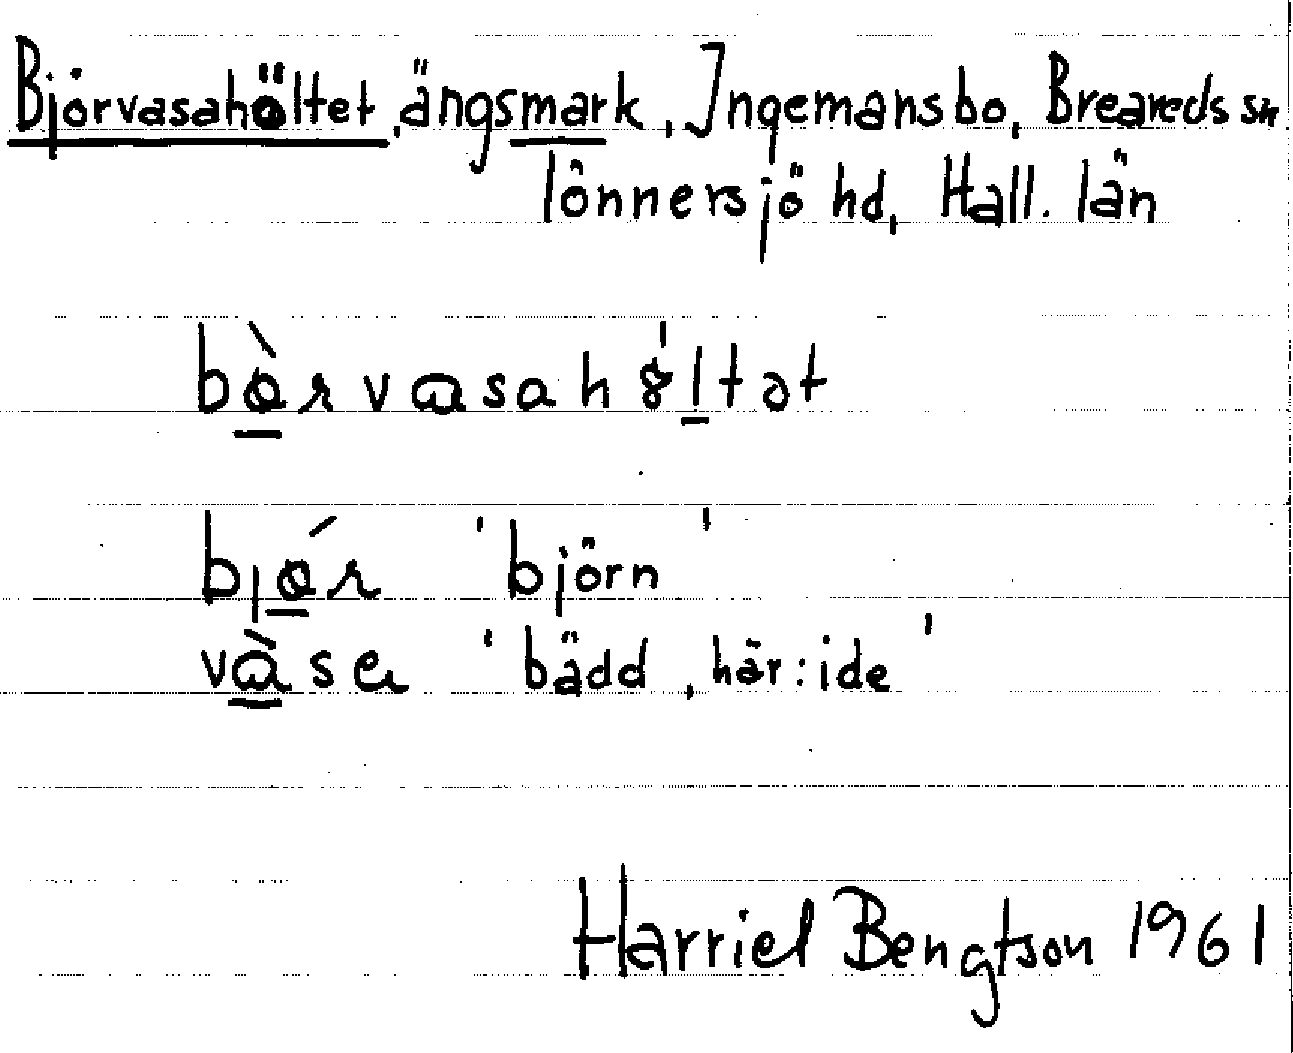 Björvasahöltet, ängsmark, Ingemansbo, Breareds sn
Tönnersjö hd, Hall. län
bø̀rvasahö́ltət
bjǿr 'björn'
vàsa 'bädd, här: ide'
Harriel Bengtson 1961